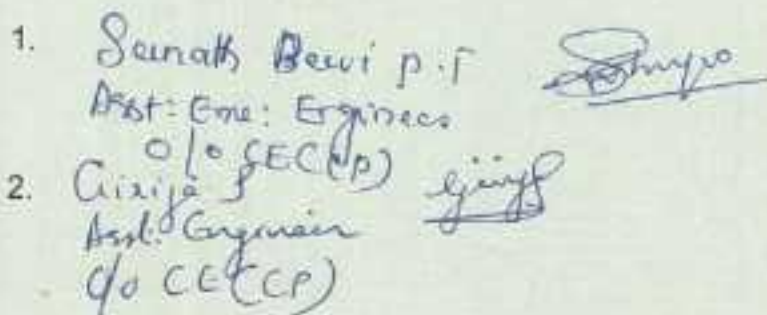 1. Seenath Beevi P.T
Asst: Exe: Engineer
O/o CE(CP)
2. Girija S
Asst. Engineer
O/o CE(CP)